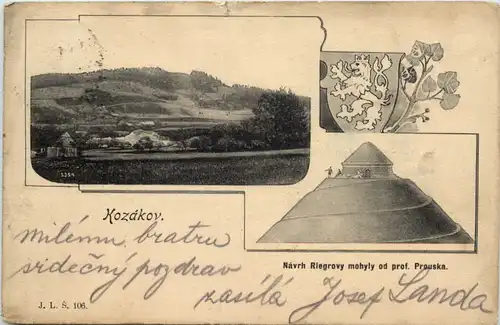 1354
Kozákov.
Návrh Riegrovy mohyly od prof. Prouska.
milému bratru
srdečný pozdrav
zasílá Josef Landa
J. L. Š. 106.